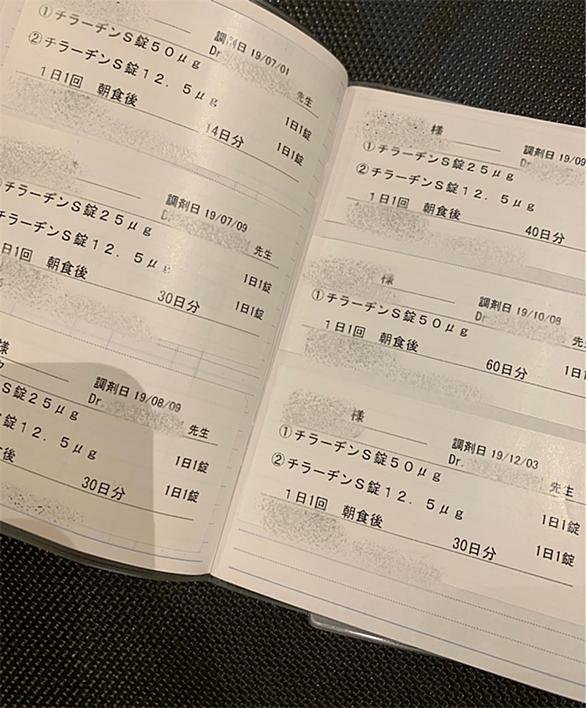 調剤日 19/07/01
①チラーヂンS錠50μg
Dr. 先生
②チラーヂンS錠12.5μg
1日1錠
1日1回 朝食後
1日1錠
14日分
調剤日 19/07/09
チラーヂンS錠25μg
先生
チラーヂンS錠12.5μg
1日1錠
日1回 朝食後
1日1錠
30日分
様
調剤日 19/08/09
S錠25μg
Dr. 先生
S錠12.5μg
1日1錠
後
1日1錠
30日分
様
調剤日 19/09
①チラーヂンS錠25μg
Dr.
②チラーヂンS錠12.5μg
1日1回 朝食後
40日分
様
調剤日 19/10/08
①チラーヂンS錠50μg
Dr. 先
1日1回 朝食後
1日1
60日分
様
調剤日 19/12/03
①チラーヂンS錠50μg
Dr. 先生
②チラーヂンS錠12.5μg
1日1錠
1日1回 朝食後
1日1錠
30日分